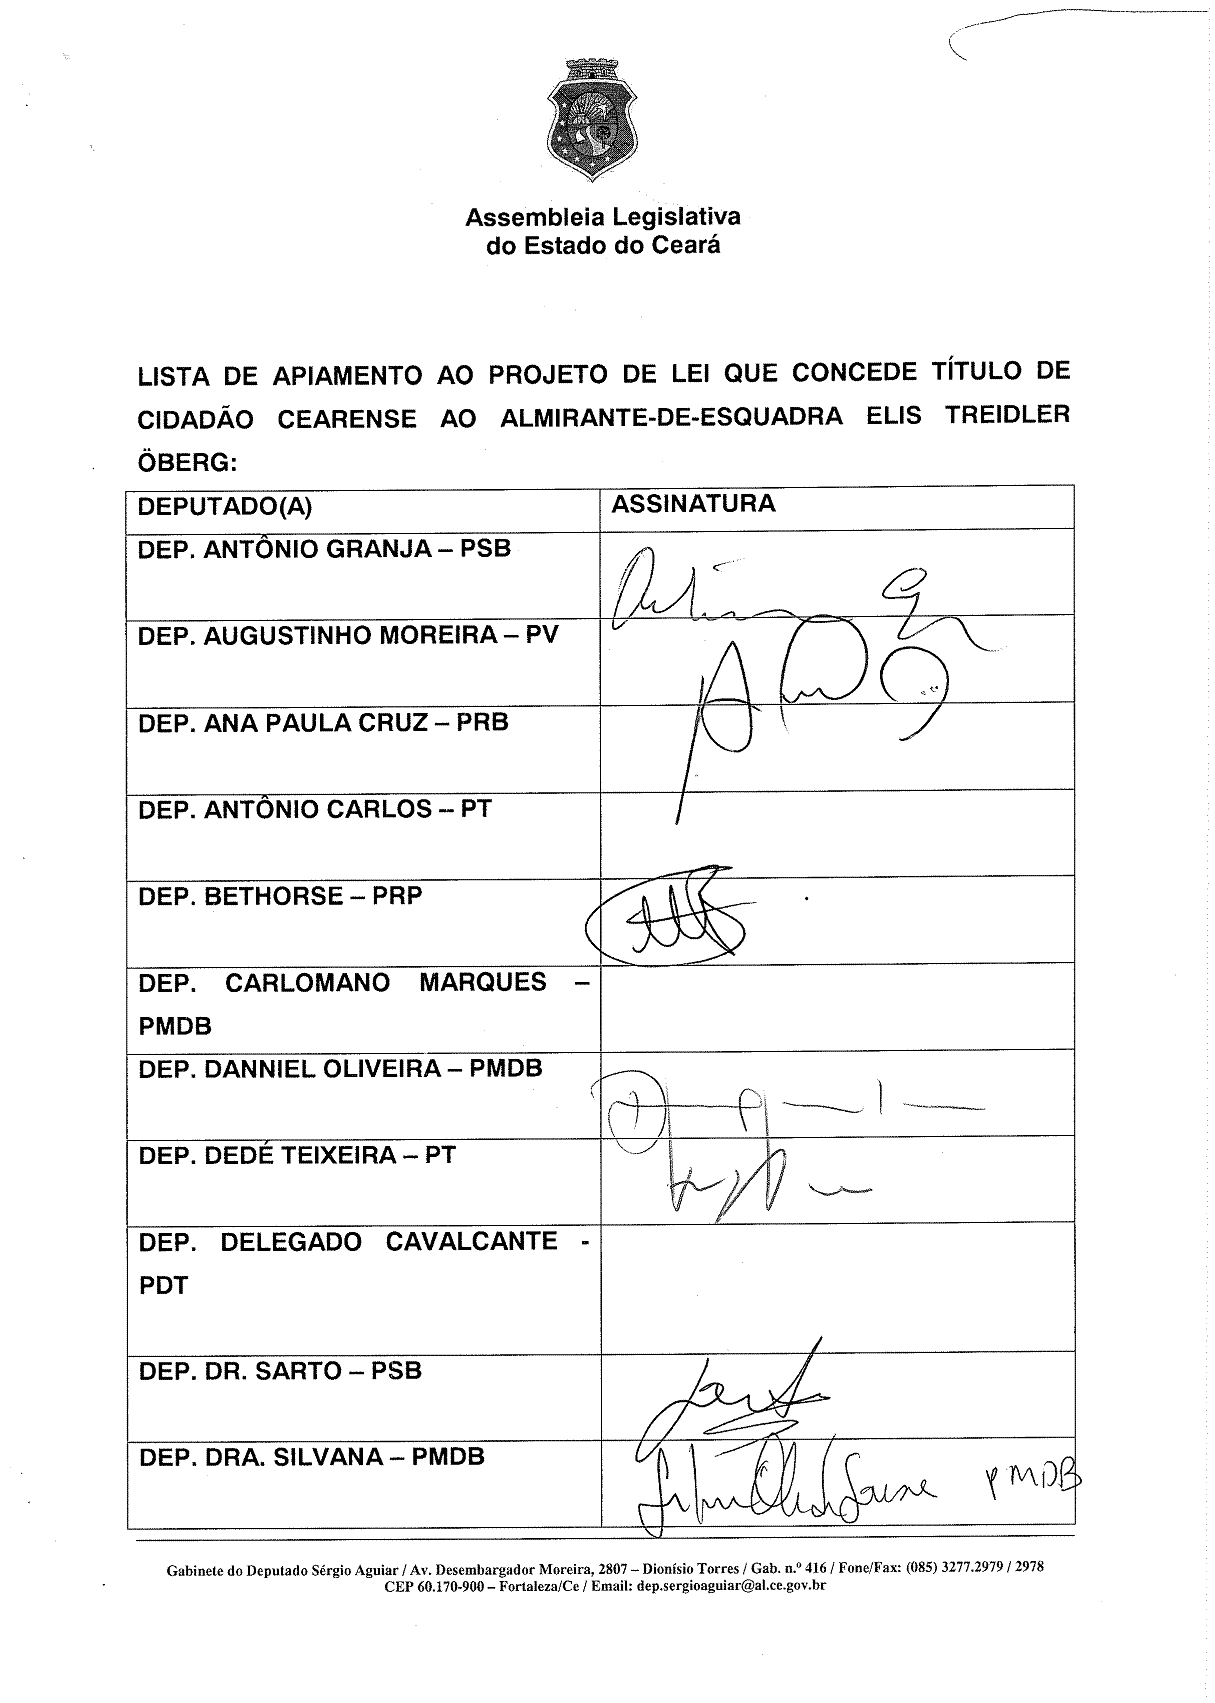 Assembleia Legislativa
do Estado do Ceará
LISTA DE APIAMENTO AO PROJETO DE LEI QUE CONCEDE TÍTULO DE
CIDADÃO CEARENSE AO ALMIRANTE-DE-ESQUADRA ELIS TREIDLER
ÖBERG:
DEPUTADO(A) ASSINATURA
DEP. ANTÔNIO GRANJA – PSB
DEP. AUGUSTINHO MOREIRA – PV
DEP. ANA PAULA CRUZ – PRB
DEP. ANTÔNIO CARLOS – PT
DEP. BETHORSE – PRP
DEP. CARLOMANO MARQUES –
PMDB
DEP. DANNIEL OLIVEIRA – PMDB
DEP. DEDÉ TEIXEIRA – PT
DEP. DELEGADO CAVALCANTE -
PDT
DEP. DR. SARTO – PSB
DEP. DRA. SILVANA – PMDB
PMDB
Gabinete do Deputado Sérgio Aguiar / Av. Desembargador Moreira, 2807 – Dionísio Torres / Gab. n.º 416 / Fone/Fax: (085) 3277.2979 / 2978
CEP 60.170-900 – Fortaleza/Ce / Email: dep.sergioaguiar@al.ce.gov.br